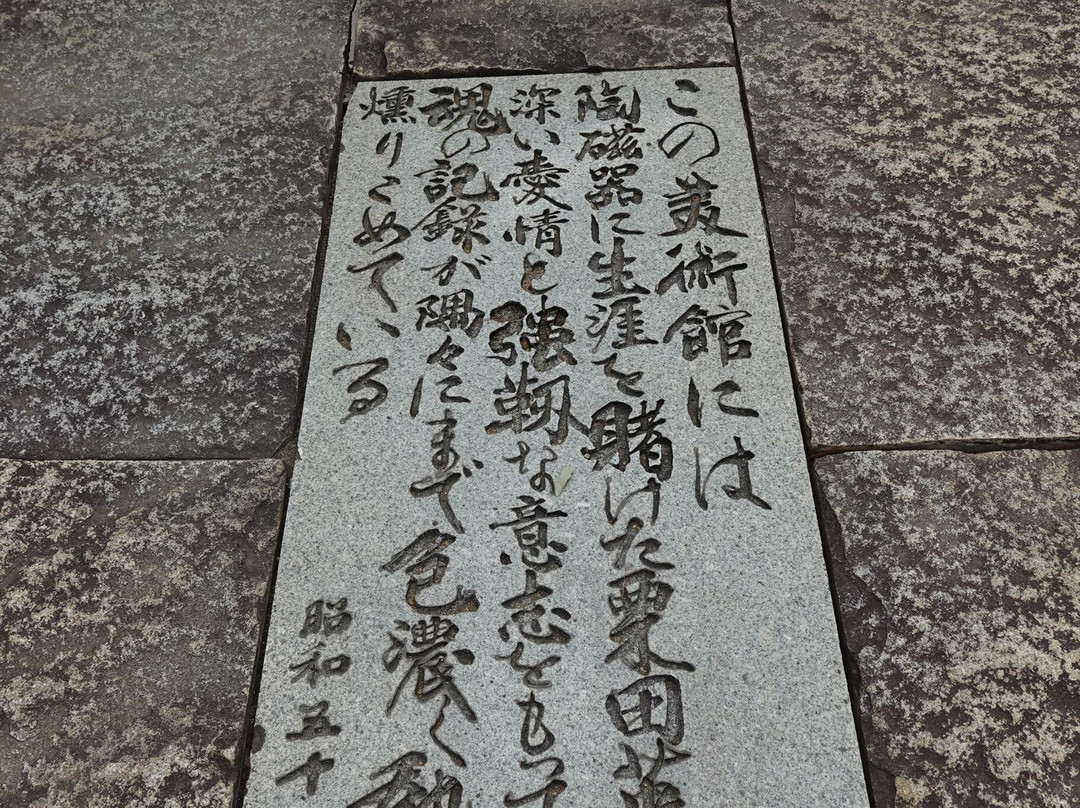 この美術館には
陶磁器に生涯を賭けた栗田英
深い愛情と強靱な意志をもって
魂の記録が隅々にまで色濃く
燻りこめている
昭和五十